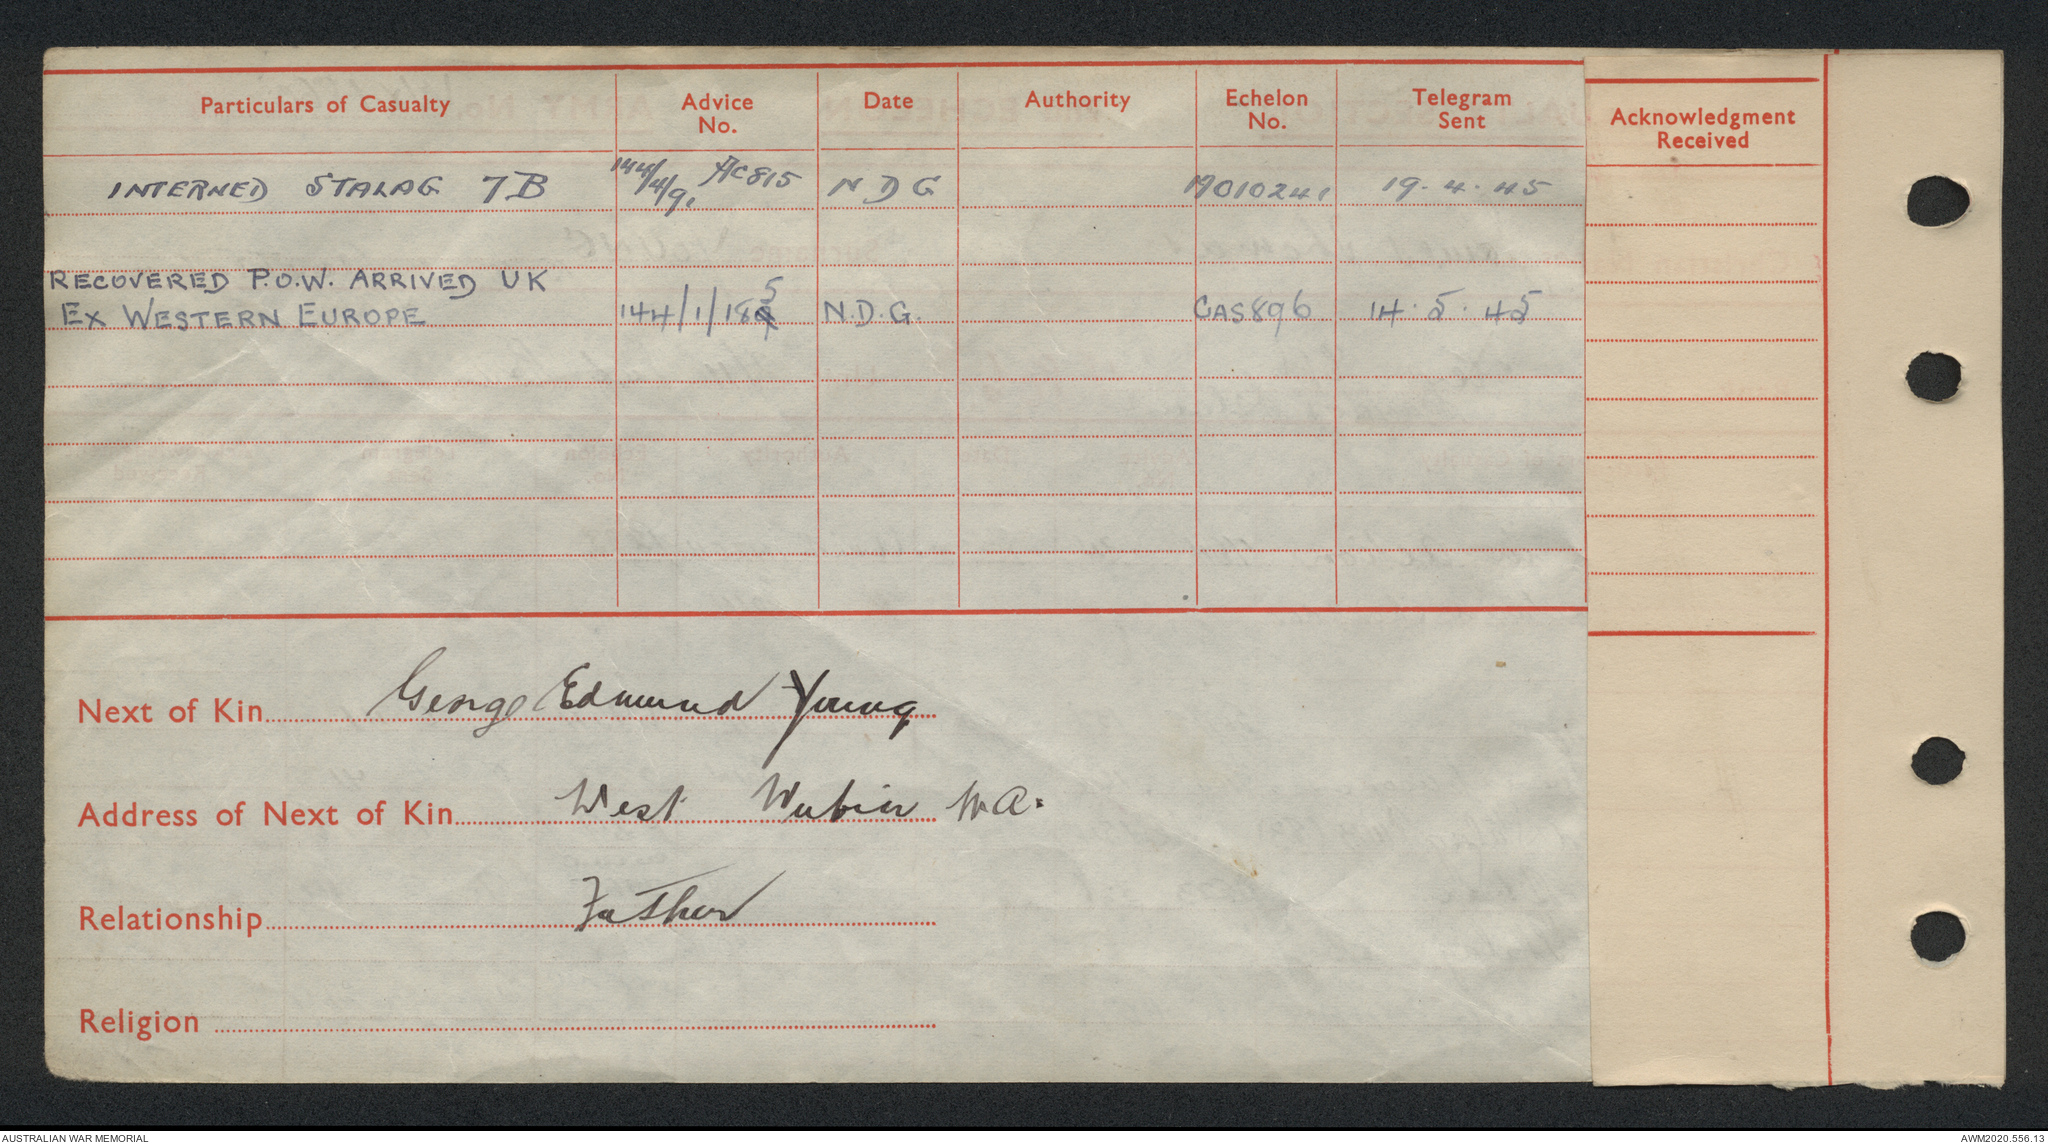 Particulars of Casualty Advice No. Date Authority Echelon No. Telegram Sent Acknowledgment Received
INTERNED STALAG 7B 144/4/91 AC815 N D G 19.4.45
RECOVERED P.O.W. ARRIVED UK
EX WESTERN EUROPE 144/1/185 N.D.G. CAS896 14.5.45
Next of Kin George Edmund Young
Address of Next of Kin West Wubin W.A.
Relationship Father
Religion
AUSTRALIAN WAR MEMORIAL AWM2020.556.13